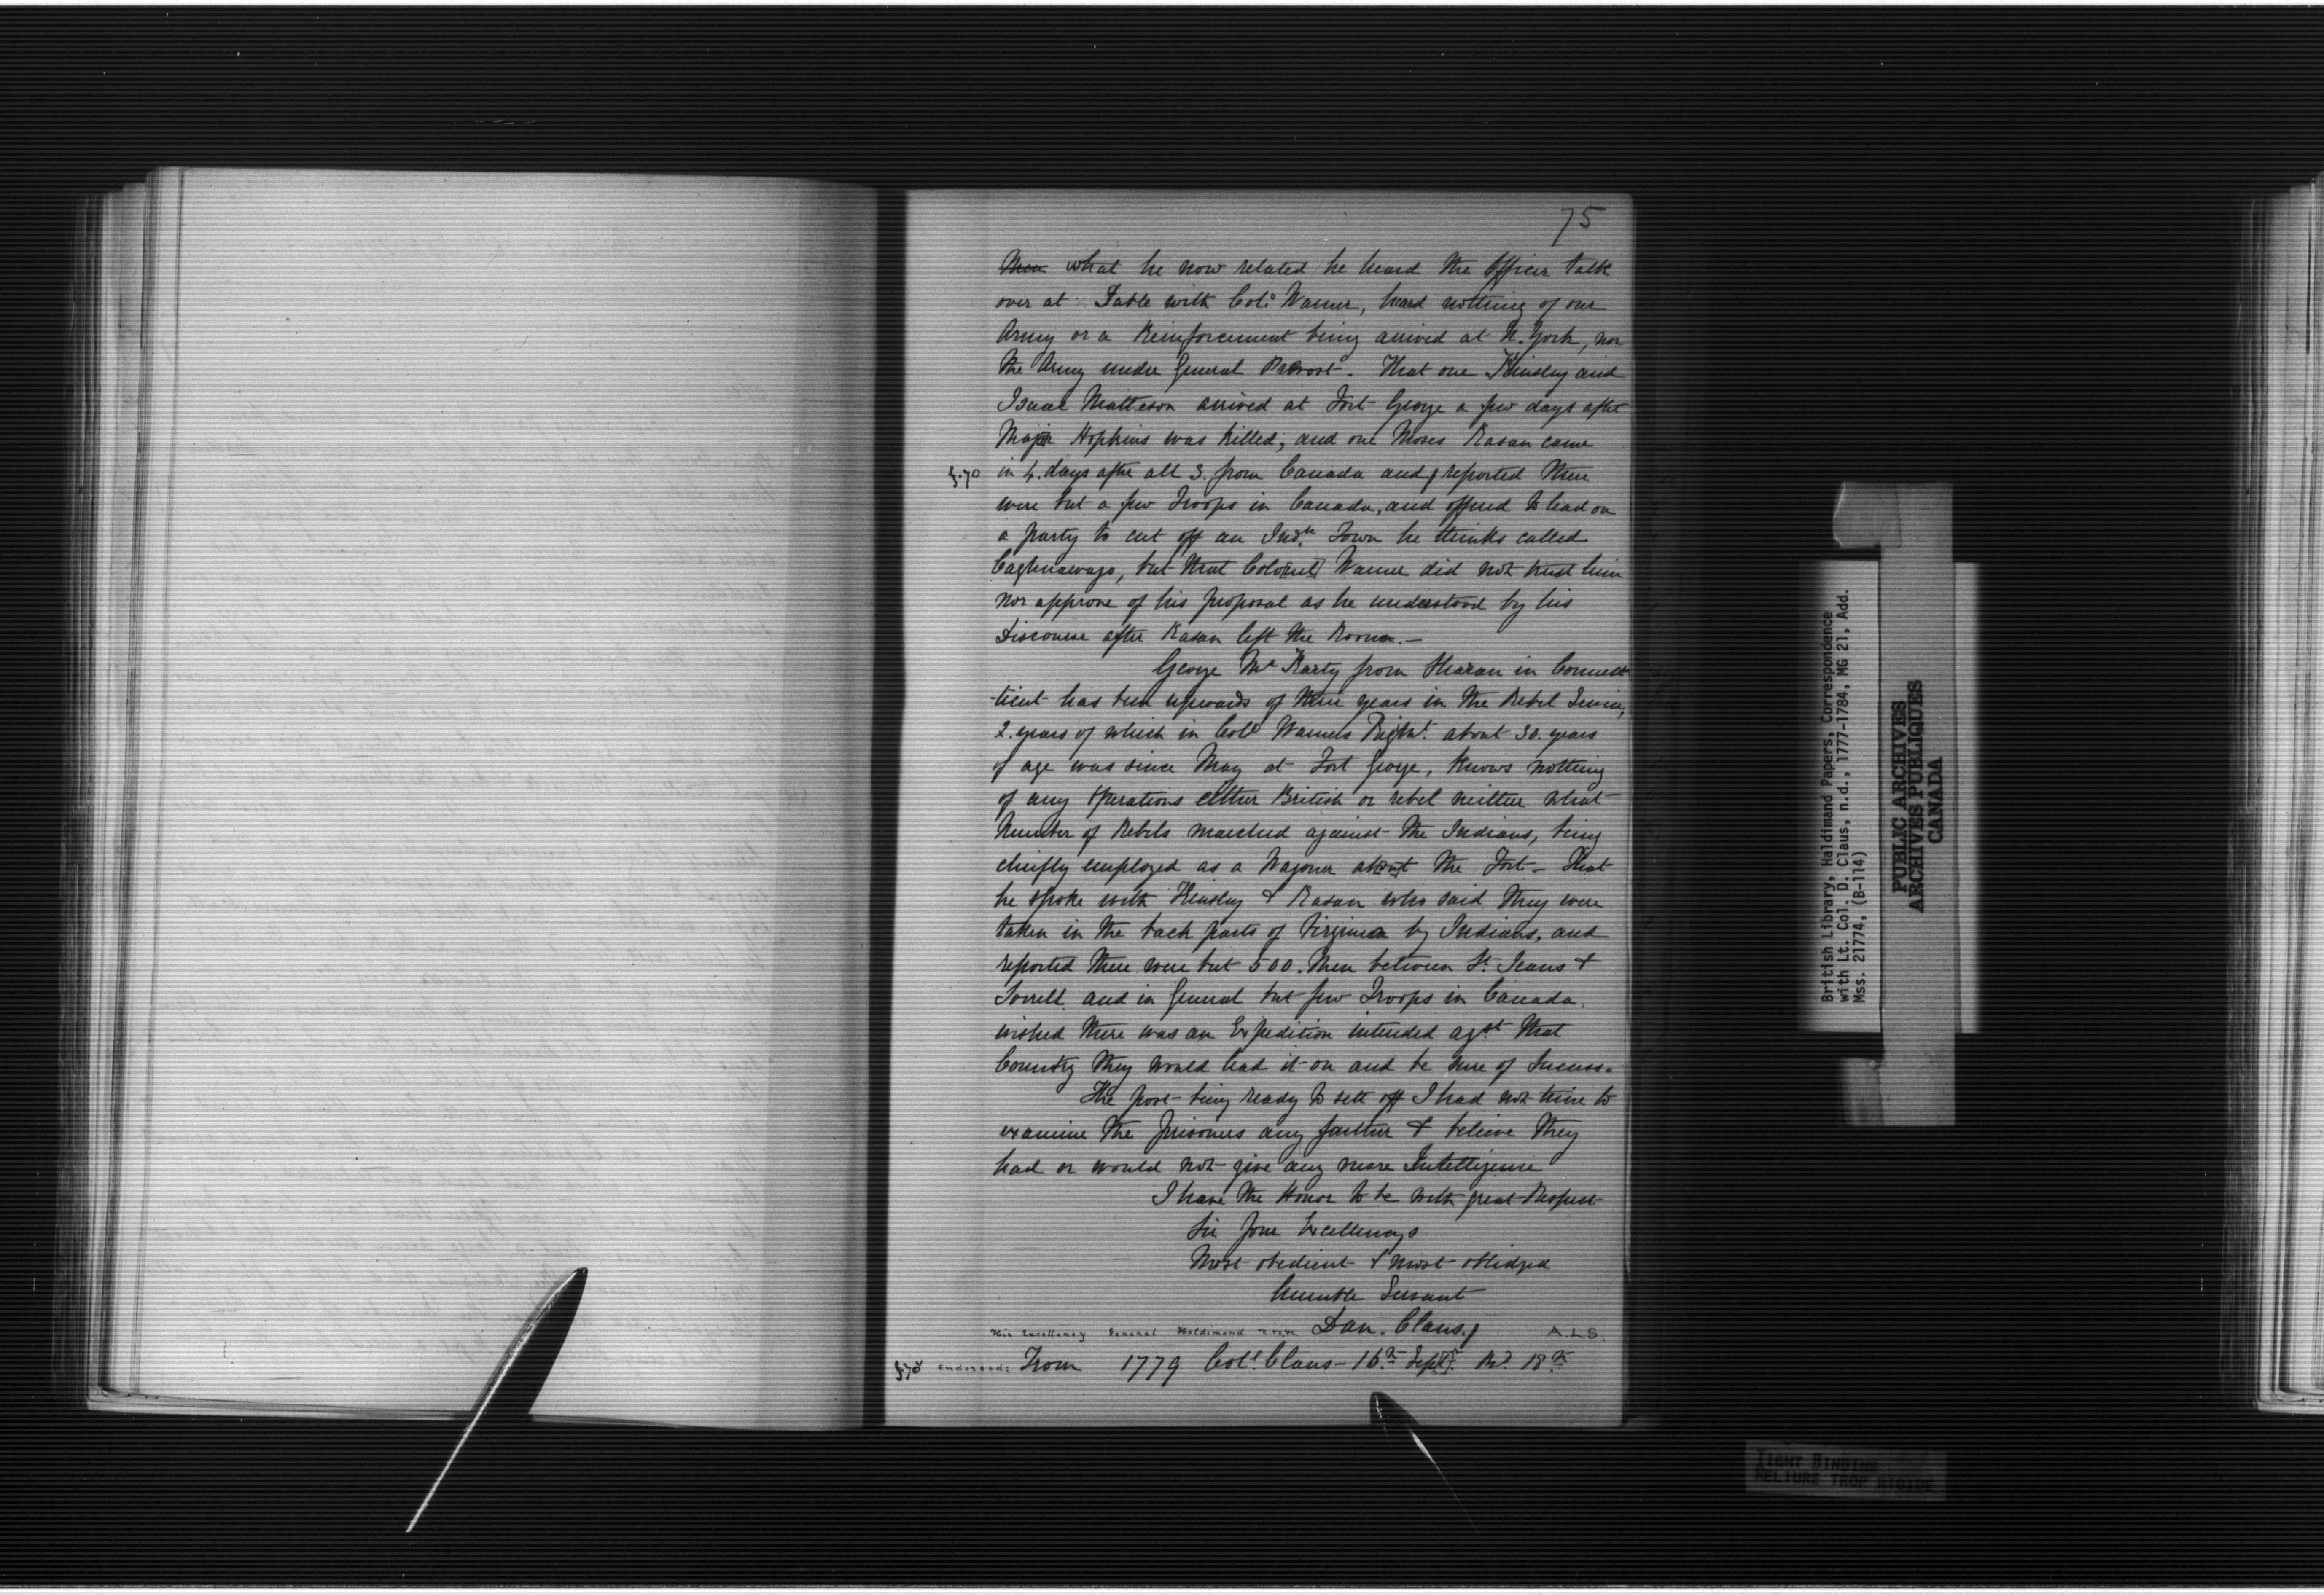 75
Men what he now related he heard the Officer talk
over at Table with Col: Warner, heard nothing of our
Army or a Reinforcement being arrived at N. York, nor
the Army under General Prevost. That one Kinsley and
Isaac Matteson arrived at Fort George a few days after
Major Hopkins was killed, and one Moses Rasan came
f.70 in 4. days after all 3. from Canada and / reported there
were but a few Troops in Canada, and offered to lead on
a party to cut off an Indn Town he thinks called
Caghnawago, but that Colo[nel] Warner did not trust him
nor approve of his proposal as he understood by his
Discourse after Rasan left the Room.—
George Mc Karty from Sharan in Connect
-ticut has been upwards of three years in the Rebel Service,
2. years of which in Colo Warners Regimt. about 30. years
of age was since May at Fort George, knows nothing
of any operations either British or rebel neither what
Number of Rebels marched against the Indians, being
chiefly employed as a Wagoner about the Fort – That
he spoke with Kinsley & Rasan who said they were
taken in the back parts of Virginia by Indians, and
reported there were but 500. Men between St. Jeans &
Sorrell and in General but few Troops in Canada.
wished there was an Expedition intended agst that
Country they would lead it on and be sure of Success.
The post being ready to sett off I had not time to
examine the prisoners any farther & believe they
had or would not give any more Intelligence
I have the Honor to be with great Respect
Sir Your Excellencys
Most obedient & most obliged
humble Servant
Dan. Claus./
His Excellency General Haldimand A.L.S.
f.70v Endorsed: From 1779 Coll. Claus – 16th Sept[r]. Rd. 18th
British Library, Haldimand Papers, Correspondence
with Lt. Col. D. Claus, n.d., 1777-1784, MG 21, Add.
Mss. 21774, (B-114)
PUBLIC ARCHIVES
ARCHIVES PUBLIQUES
CANADA
TIGHT BINDING
RELIURE TROP RIGIDE